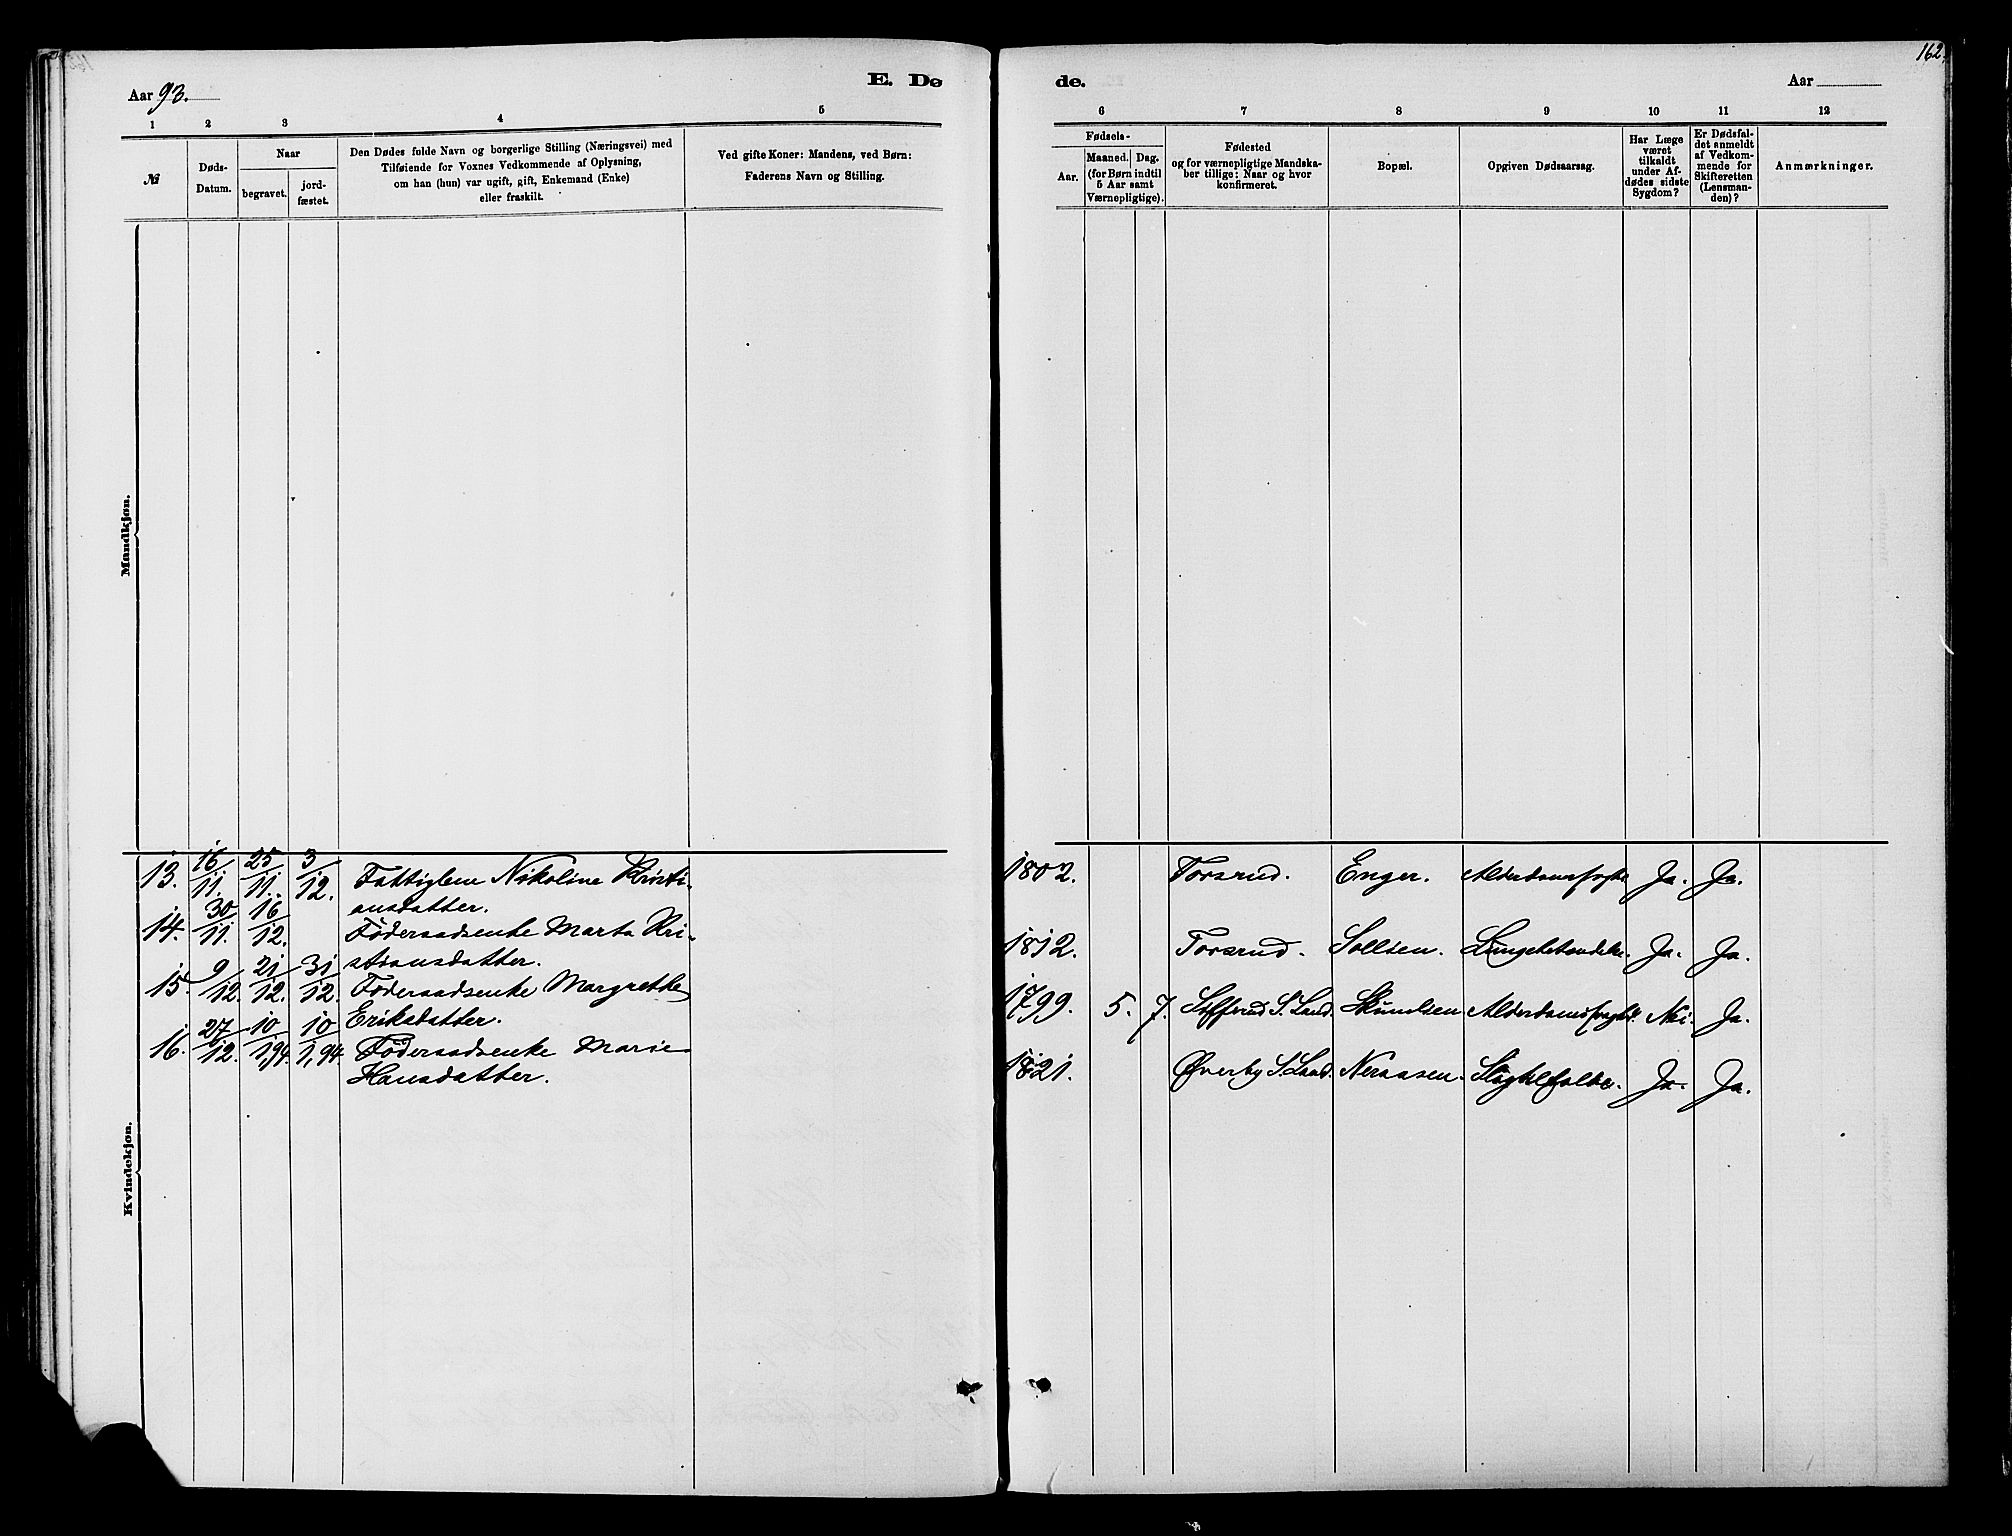 162.
Aar 93.
E. Dø
de.
Aar
1 2 3 4 5
6 7 8 9 10 11 12
№
Døds-
Datum.
Naar
begravet.
jord-
fæstet.
Den Dødes fulde Navn og borgerlige Stilling (Næringsvei) med
Tilføiende for Voxnes Vedkommende af Oplysning,
om han (hun) var ugift, gift, Enkemand (Enke)
eller fraskilt.
Ved gifte Koner: Mandens, ved Børn:
Faderens Navn og Stilling.
Fødsels-
Aar.
Maaned. Dag.
(for Børn indtil
5 Aar samt
Værnepligtige).
Fødested
og for værnepligtige Mandska-
ber tillige: Naar og hvor
konfirmeret.
Bopæl.
Opgiven Dødsaarsag.
Har Læge
været
tilkaldt
under Af-
dødes sidste
Sygdom?
Er Dødsfal-
det anmeldt
af Vedkom-
mende for
Skifteretten
(Lensman-
den)?
Anmærkninger.
Mandkjøn.
Kvindekjøn.
13. 16/11. 25/11. 3/12. Fattiglem Nikoline Kristi-
ansdatter.
1802. Torsrud. Enger. Ja. Ja.
14. 30/11. 16/12. Föderaadsenke Marta Kri-
stiansdatter.
1812. Torsrud. Sollien. Lungebetændelse. Ja. Ja.
15. 9/12. 21/12. 31/12. Föderaadsenke Margrethe
Eriksdatter.
1799. 5. 7. S. Land. Nei. Ja.
16. 27/12. 10/1,94. 10/1,94. Föderaadsenke Marie
Hansdatter.
1821. Øverby S. Land. Neraasen. Ja. Ja.